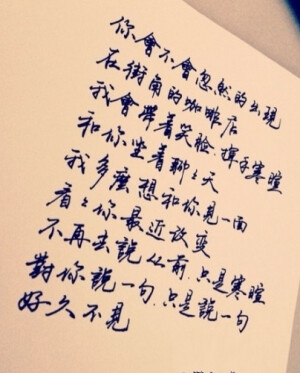 你會不會忽然的出現
在街角的咖啡店
我會帶着笑脸 揮手寒暄
和你坐着聊々天
我多麼想和你見一面
看々你最近改变
不再去説从前,只是寒暄
對你説一句,只是説一句
好久不見